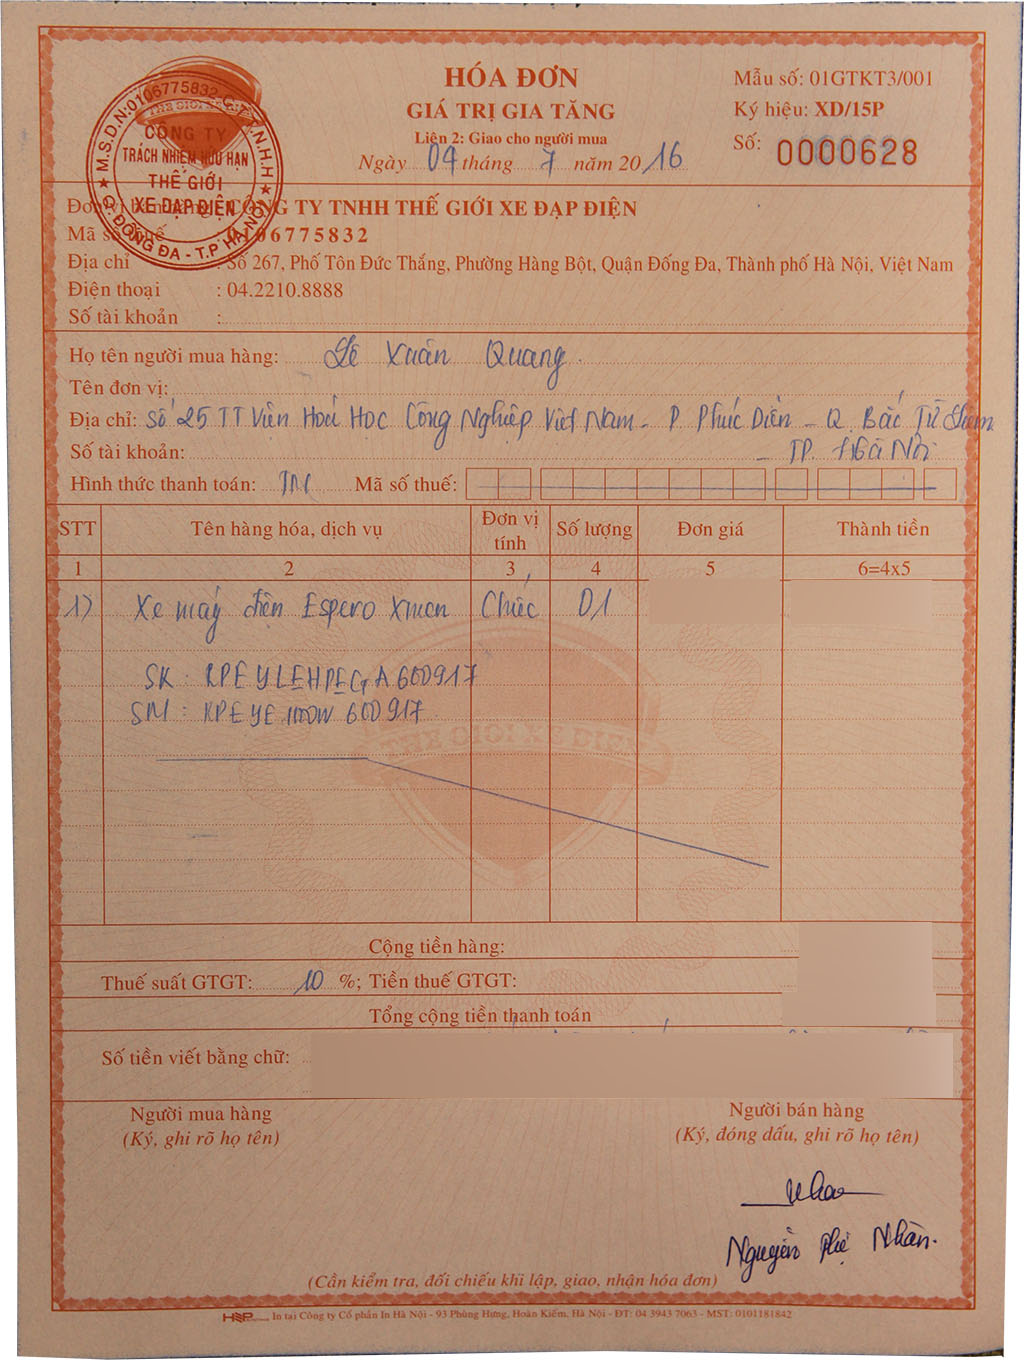 HÓA ĐƠN
GIÁ TRỊ GIA TĂNG
Liên 2: Giao cho người mua
Ngày 04 tháng 7 năm 2016
Mẫu số: 01GTKT3/001
Ký hiệu: XD/15P
Số: 0000628
M.S.D.N:0106775832-C.T.T.N.H.H
CÔNG TY
TRÁCH NHIỆM HỮU HẠN
THẾ GIỚI
XE ĐẠP ĐIỆN
Q. ĐỐNG ĐA - T.P HÀ NỘI
Đơn vị bán hàng: CÔNG TY TNHH THẾ GIỚI XE ĐẠP ĐIỆN
Mã số thuế : 0106775832
Địa chỉ : Số 267, Phố Tôn Đức Thắng, Phường Hàng Bột, Quận Đống Đa, Thành phố Hà Nội, Việt Nam
Điện thoại : 04.2210.8888
Số tài khoản :
Họ tên người mua hàng: Lê Xuân Quang
Tên đơn vị:
Địa chỉ: Số 25 TT Viện Hoá Học Công Nghiệp Việt Nam - P Phúc Diễn - Q. Bắc Từ Liêm
- TP. Hà Nội
Số tài khoản:
Hình thức thanh toán: TM Mã số thuế:
STT Tên hàng hóa, dịch vụ Đơn vị tính Số lượng Đơn giá Thành tiền
1 2 3 4 5 6=4x5
1) Xe máy điện Espero Xmen Chiếc 01
SK : RPEYLEHPEGA600917
SM : RPEYE1100W600917
THẾ GIỚI XE ĐIỆN
Cộng tiền hàng:
Thuế suất GTGT: 10 %; Tiền thuế GTGT:
Tổng cộng tiền thanh toán
Số tiền viết bằng chữ:
Người mua hàng
(Ký, ghi rõ họ tên)
Người bán hàng
(Ký, đóng dấu, ghi rõ họ tên)
Nguyễn Nhàn.
(Cần kiểm tra, đối chiếu khi lập, giao, nhận hóa đơn)
In tại Công ty Cổ phần In Hà Nội - 93 Phùng Hưng, Hoàn Kiếm, Hà Nội - ĐT: 04 3943 7063 - MST: 0101181842